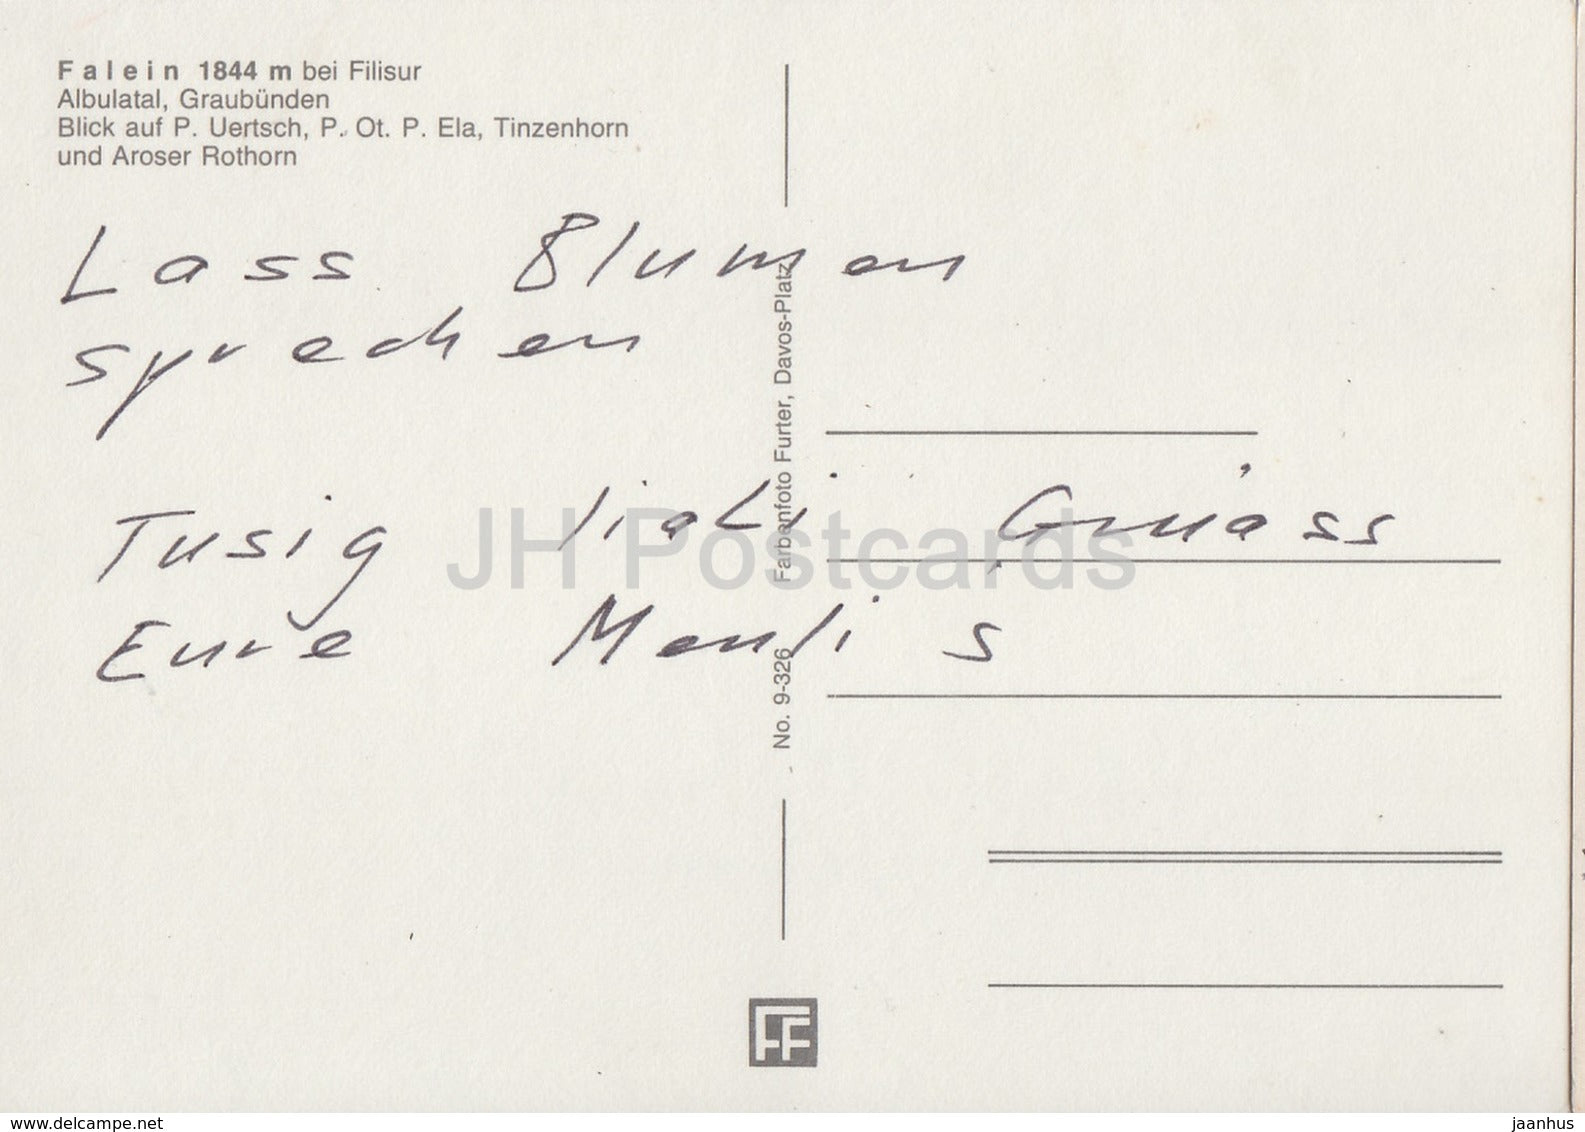 Falein 1844 m bei Filisur
Albulatal, Graubünden
Blick auf P. Uertsch, P. Ot. P. Ela, Tinzenhorn
und Aroser Rothorn
Lass Blumen
sprechen
Tusig liabi Grüass
Eure
No. 9-326 Farbenfoto Furter, Davos-Platz
JH Postcards
FF
www.delcampe.net
jaanhus